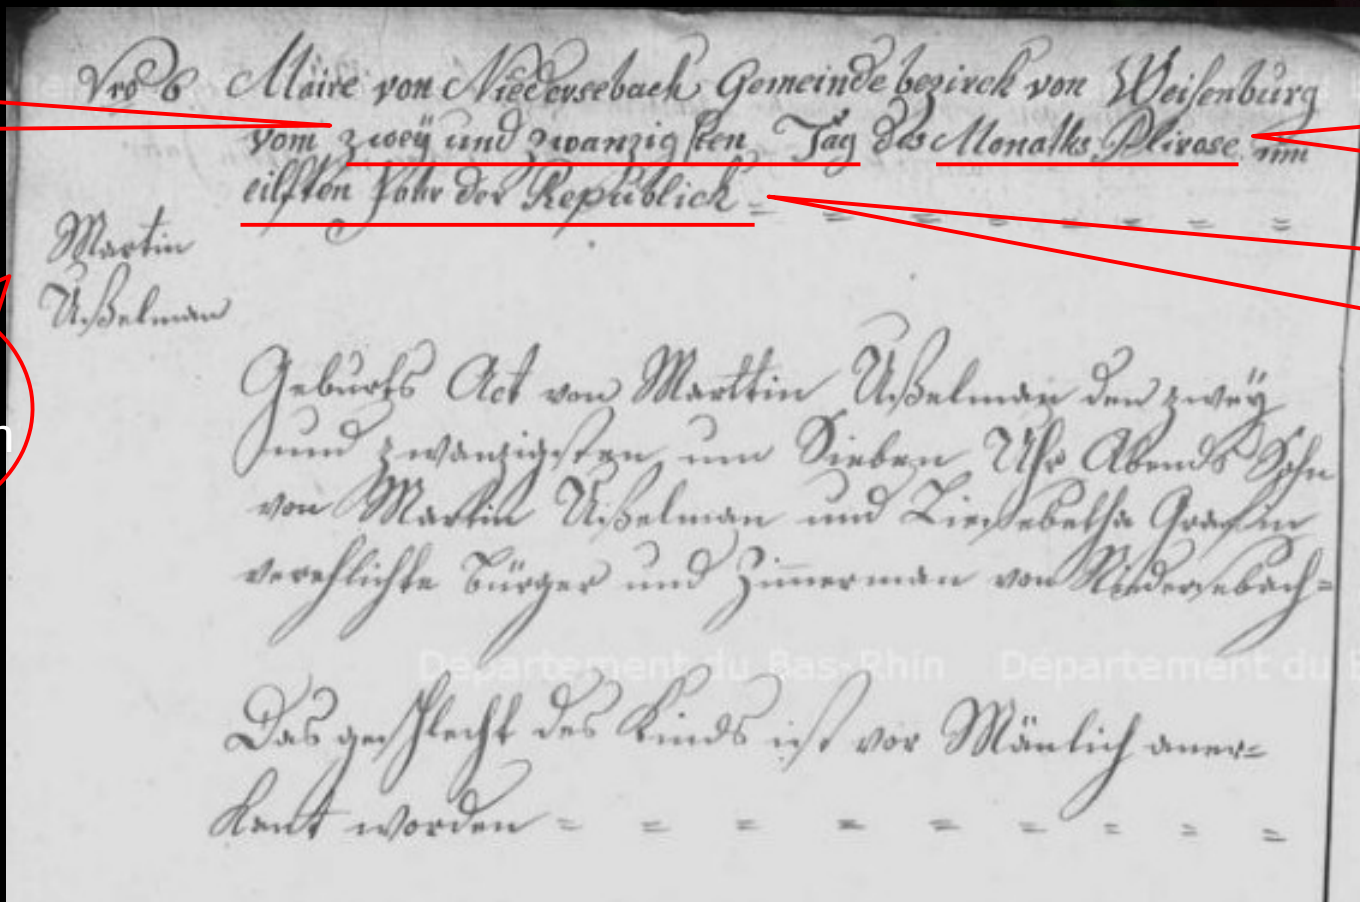 Nro 6 Maire von Niedersebach Gemeinde bezirck von Weisenburg
vom zweÿ und zwanzigsten Tag des Monaths Plivose im
eilften Jahr der Republick =
Martin
Ußelman
Geburts Act von Marttin Ußelman den zweÿ
und zwanzigsten um Sieben Uhr Abends Sohn
von Martin Ußelman und Liessebetha Grafin
verehlichte Bürger und Zimmerman von Niedersebach =
Das geschlecht des Kinds ist vor Mänlich aner=
kant worden = = = = = = = = =
Département du Bas-Rhin Département du B
n